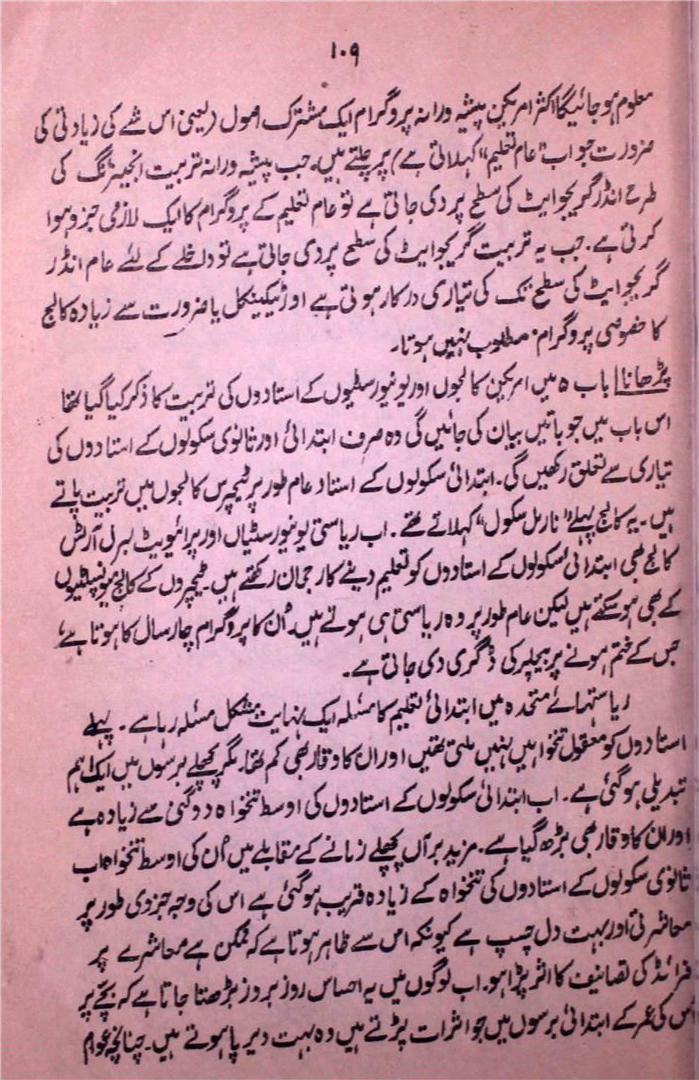 ۱۰۹
معلوم ہو جائیگا اکثر امریکن پیشہ ورانہ پروگرام ایک مشترک اصول (یعنی اس شے کی زیادتی کی
ضرورت جو اب "عام تعلیم" کہلاتی ہے) پر چلتے ہیں۔ جب پیشہ ورانہ تربیت انجینرنگ کی
طرح انڈر گریجوایٹ کی سطح پر دی جاتی ہے تو عام تعلیم کے پروگرام کا ایک لازمی جزو ہوا
کرتی ہے۔ جب یہ تربیت گریجوایٹ کی سطح پر دی جاتی ہے تو داخلے کے لئے عام انڈر
گریجوایٹ کی سطح تک کی تیاری درکار ہوتی ہے اور ٹیکنیکل یا ضرورت سے زیادہ کالج
کا خصوصی پروگرام مطلوب نہیں ہوتا۔
پڑھانا| باب ۵ میں امریکن کالجوں اور یونیورسٹیوں کے استادوں کی تربیت کا ذکر کیا گیا تھا
اس باب میں جو باتیں بیان کی جائیں گی وہ صرف ابتدائی اور ثانوی سکولوں کے استادوں کی
تیاری سے تعلق رکھیں گی۔ ابتدائی سکولوں کے استاد عام طور پر ٹیچرس کالجوں میں تربیت پاتے
ہیں۔ یہ کالج پہلے "نارمل سکول" کہلائے تھے۔ اب ریاستی یونیورسٹیاں اور پرائیویٹ لبرل آرٹس
کالج بھی ابتدائی سکولوں کے استادوں کو تعلیم دینے کا رجحان رکھتے ہیں۔ ٹیچروں کے کالج میونسپلٹیوں
کے بھی ہو سکتے ہیں لیکن عام طور پر وہ ریاستی ہی ہوتے ہیں۔ اُن کا پروگرام چار سال کا ہوتا ہے،
جس کے ختم ہونے پر بیچلر کی ڈگری دی جاتی ہے۔
ریاستہائے متحدہ میں ابتدائی تعلیم کا مسئلہ ایک نہایت مشکل مسئلہ رہا ہے۔ پہلے
استادوں کو معقول تنخواہیں نہیں ملتی تھیں اور ان کا وقار بھی کم تھا۔ مگر پچھلے برسوں میں ایک اہم
تبدیلی ہو گئی ہے۔ اب ابتدائی سکولوں کے استادوں کی اوسط تنخواہ دوگنی سے زیادہ ہے
اور ان کا وقار بھی بڑھ گیا ہے۔ مزید برآں پچھلے زمانے کے مقابلے میں اُن کی اوسط تنخواہ اب
ثانوی سکولوں کے استادوں کی تنخواہ کے زیادہ قریب ہو گئی ہے اس کی وجہ جزوی طور پر
معاشرتی اور بہت دل چسپ ہے کیونکہ اس سے ظاہر ہوتا ہے کہ ممکن ہے معاشرے پر
فرائڈ کی تصانیف کا اثر پڑا ہو۔ اب لوگوں میں یہ احساس روز بروز بڑھتا جاتا ہے کہ بچے پر
اس کی عمر کے ابتدائی برسوں میں جو اثرات پڑتے ہیں وہ بہت دیر پا ہوتے ہیں۔ چنانچہ عوام